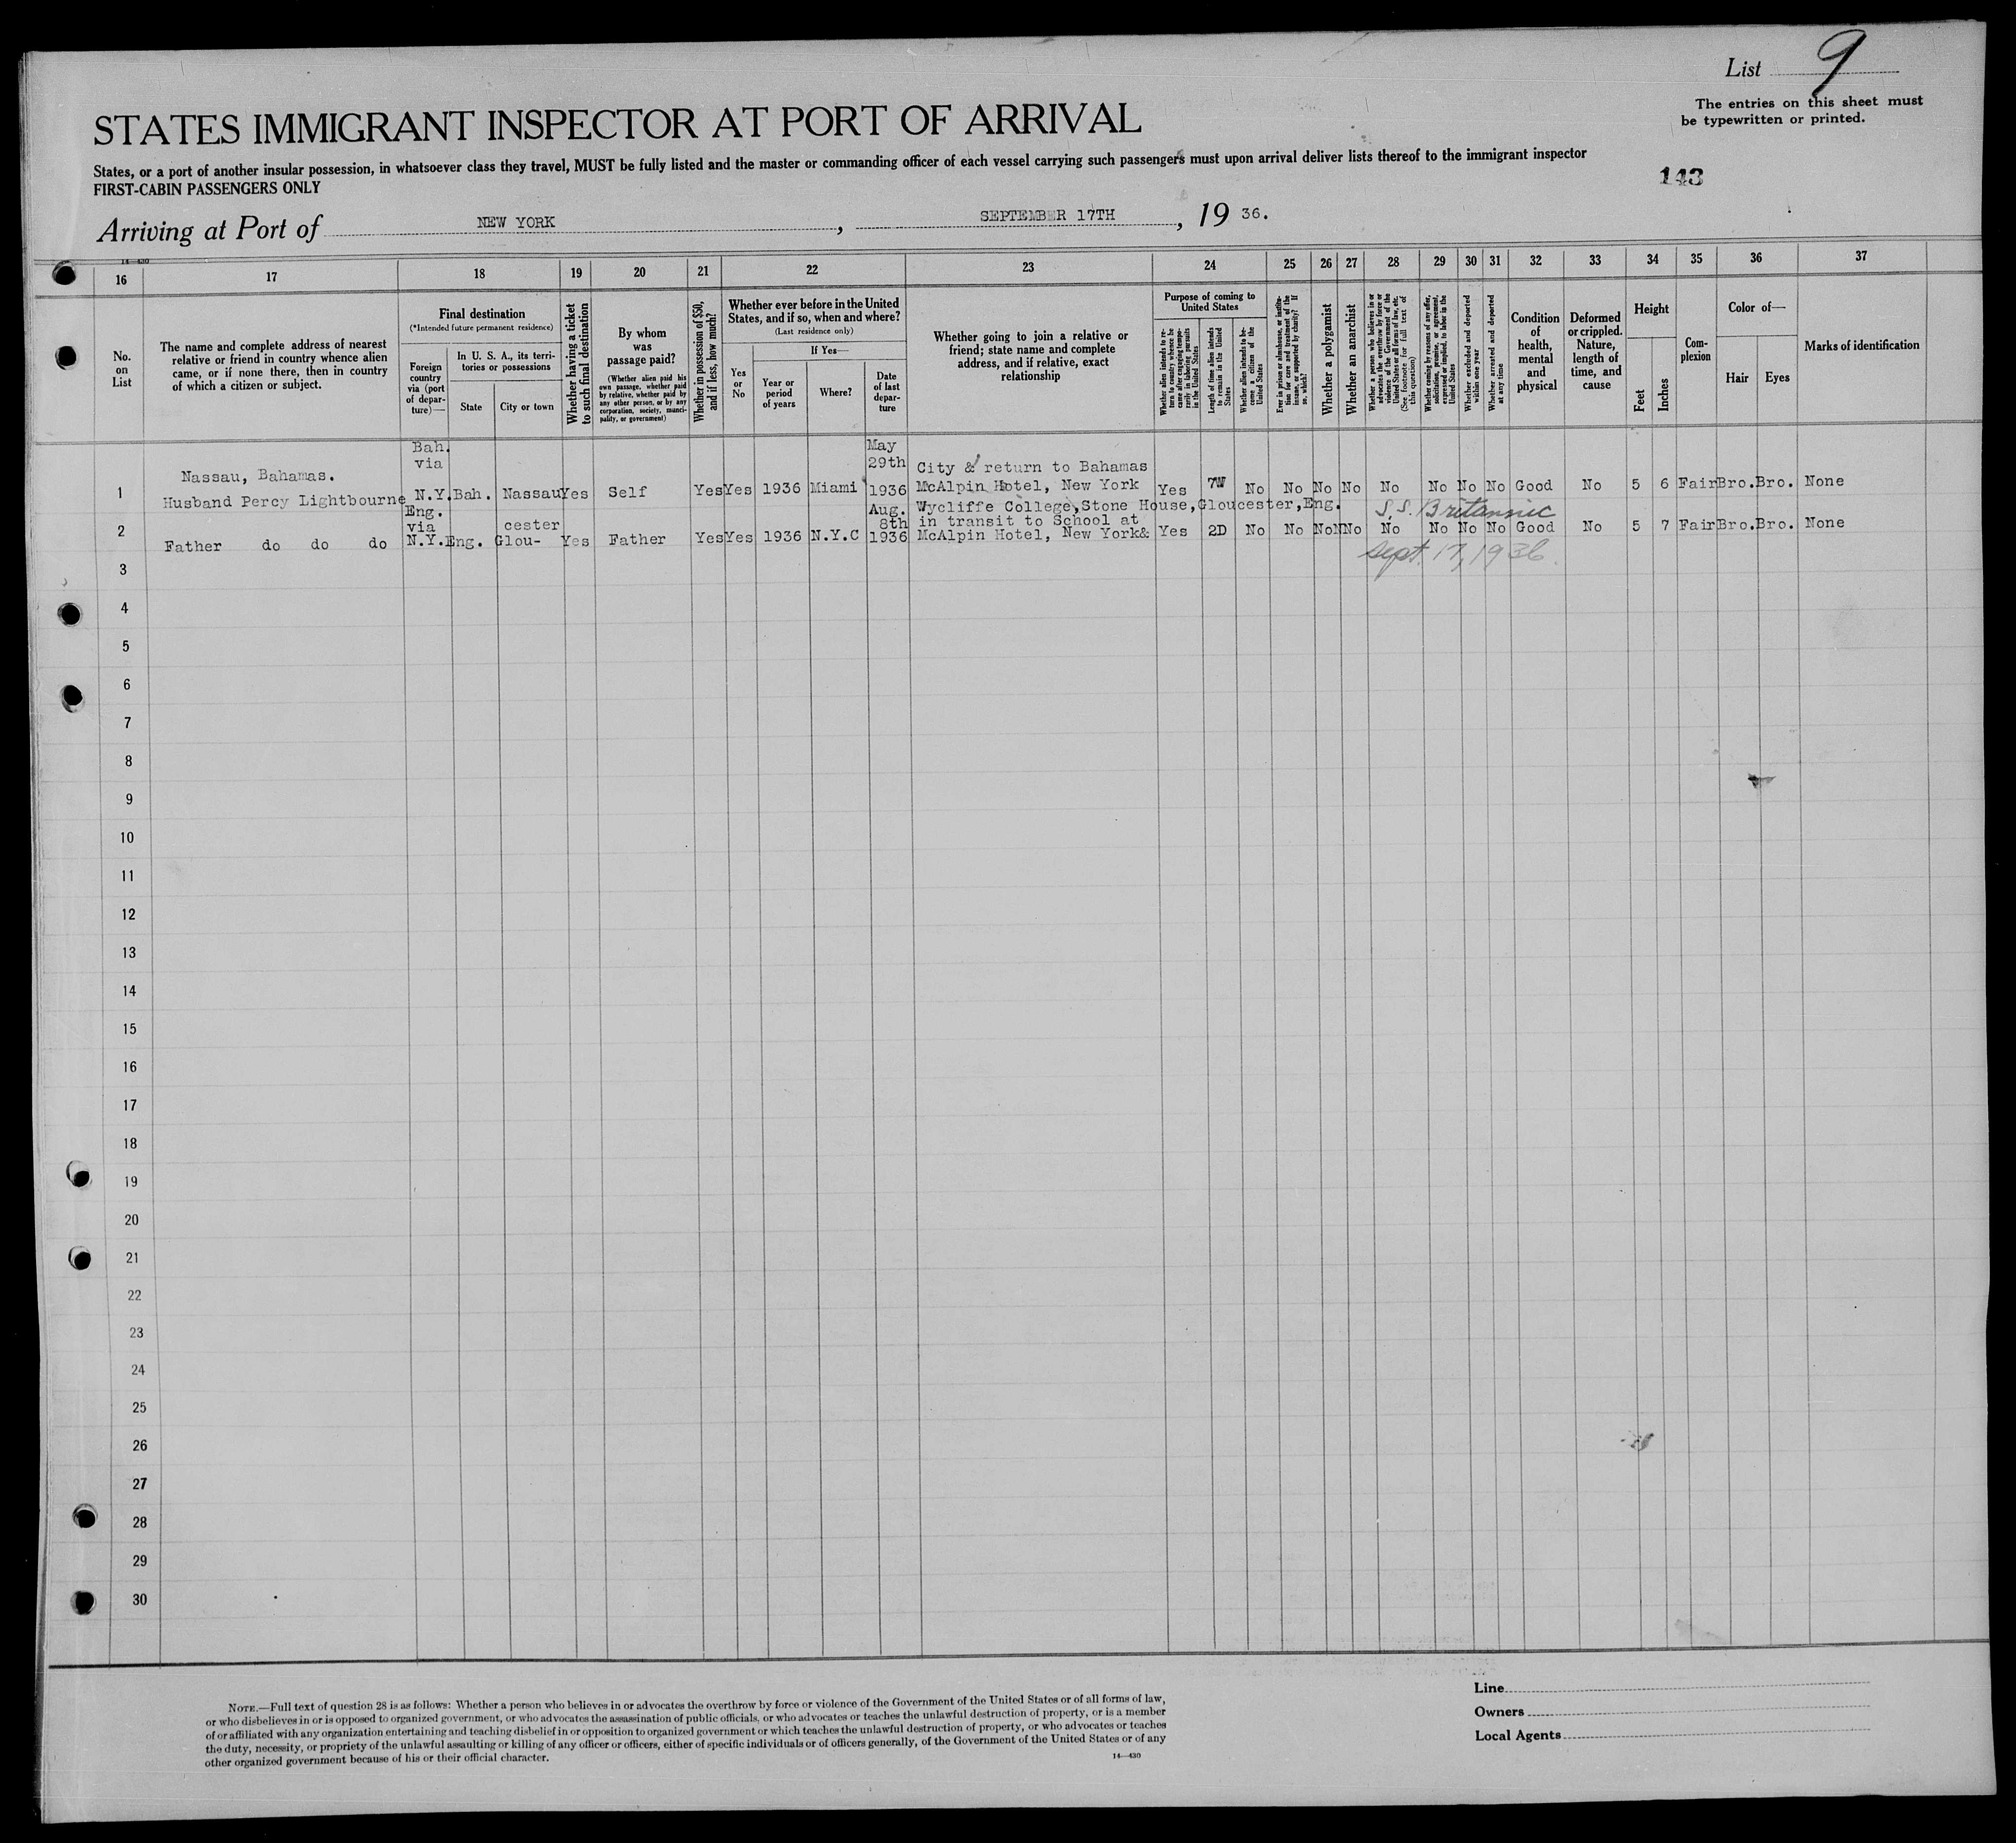 List 9
The entries on this sheet must
be typewritten or printed.
STATES IMMIGRANT INSPECTOR AT PORT OF ARRIVAL
States, or a port of another insular possession, in whatsoever class they travel, MUST be fully listed and the master or commanding officer of each vessel carrying such passengers must upon arrival deliver lists thereof to the immigrant inspector
FIRST-CABIN PASSENGERS ONLY
143
Arriving at Port of NEW YORK, SEPTEMBER 17TH, 19 36.
14—430
16 17 18 19 20 21 22 23 24 25 26 27 28 29 30 31 32 33 34 35 36 37
No.
on
List
The name and complete address of nearest
relative or friend in country whence alien
came, or if none there, then in country
of which a citizen or subject.
Final destination
(*Intended future permanent residence)
Foreign
country
via (port
of depar-
ture)—
In U. S. A., its terri-
tories or possessions
State
City or town
Whether having a ticket
to such final destination
By whom
was
passage paid?
(Whether alien paid his
own passage, whether paid
by relative, whether paid by
any other person, or by any
corporation, society, munici-
pality, or government)
Whether in possession of $50,
and if less, how much?
Whether ever before in the United
States, and if so, when and where?
(Last residence only)
Yes
or
No
If Yes—
Year or
period
of years
Where?
Date
of last
depar-
ture
Whether going to join a relative or
friend; state name and complete
address, and if relative, exact
relationship
Purpose of coming to
United States
Whether alien intends to re-
turn to country whence he
came after engaging tempo-
rarily in laboring pursuits
in the United States
Length of time alien intends
to remain in the United
States
Whether alien intends to be-
come a citizen of the
United States
Ever in prison or almshouse, or institu-
tion for care and treatment of the
insane, or supported by charity? If
so, which?
Whether a polygamist
Whether an anarchist
Whether a person who believes in or
advocates the overthrow by force or
violence of the Government of the
United States or all forms of law, etc.
(See footnote for full text of
this question)
Whether coming by reasons of any offer,
solicitation, promise, or agreement,
expressed or implied, to labor in the
United States
Whether excluded and deported
within one year
Whether arrested and deported
at any time
Condition
of
health,
mental
and
physical
Deformed
or crippled.
Nature,
length of
time, and
cause
Height
Feet
Inches
Com-
plexion
Color of—
Hair
Eyes
Marks of identification
Bah. May
via 29th
Nassau, Bahamas. City & return to Bahamas
1 Husband Percy Lightbourne N.Y. Bah. Nassau Yes Self Yes Yes 1936 Miami 1936 McAlpin Hotel, New York Yes 7W No No No No No No No No Good No 5 6 Fair Bro. Bro. None
Eng. Aug. Wycliffe College, Stone House, Gloucester, Eng. S.S. Britannic
via cester 8th in transit to School at
2 Father do do do N.Y. Eng. Glou- Yes Father Yes Yes 1936 N.Y.C 1936 McAlpin Hotel, New York& Yes 2D No No No No No No No No Good No 5 7 Fair Bro. Bro. None
Sept. 17, 1936.
3
4
5
6
7
8
9
10
11
12
13
14
15
16
17
18
19
20
21
22
23
24
25
26
27
28
29
30
NOTE.—Full text of question 28 is as follows: Whether a person who believes in or advocates the overthrow by force or violence of the Government of the United States or of all forms of law,
or who disbelieves in or is opposed to organized government, or who advocates the assassination of public officials, or who advocates or teaches the unlawful destruction of property, or is a member
of or affiliated with any organization entertaining and teaching disbelief in or opposition to organized government or which teaches the unlawful destruction of property, or who advocates or teaches
the duty, necessity, or propriety of the unlawful assaulting or killing of any officer or officers, either of specific individuals or of officers generally, of the Government of the United States or of any
other organized government because of his or their official character.
14—430
Line
Owners
Local Agents